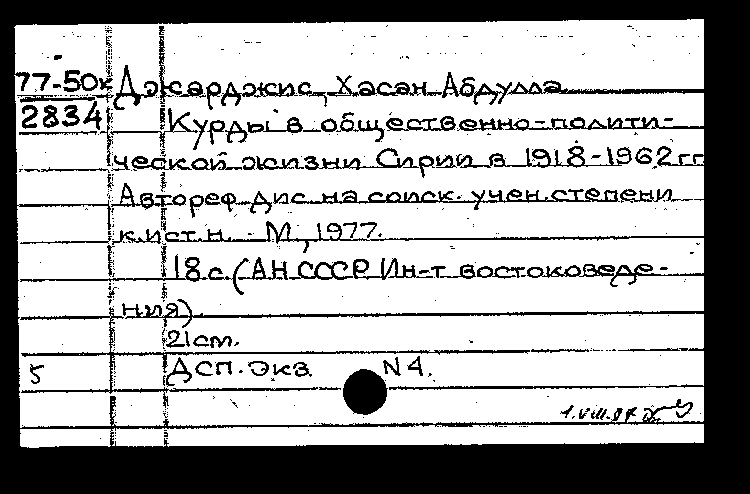 77-50к Джарджис, Хасан Абдулла
2834 Курды в общественно-полити-
ческой жизни Сирии в 1918-1962 гг
Автореф. дис. на соиск. учен. степени
к.ист.н. - М., 1977.
18 с. (АН СССР. Ин-т востоковеде-
ния).
21 cm.
5 ДСП. Экз. N 4.